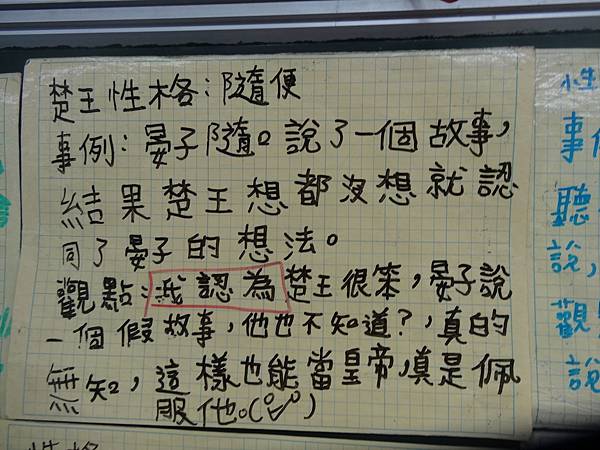 楚王性格:隨便
事例:晏子隨。說了一個故事,
結果楚王想都沒想就認
同了晏子的想法。
觀點:我認為楚王很笨,晏子說
一個假故事,他也不知道?,真的
無知,這樣也能當皇帝,真是佩
服他。
性
事
聽
說,
觀
說
性格